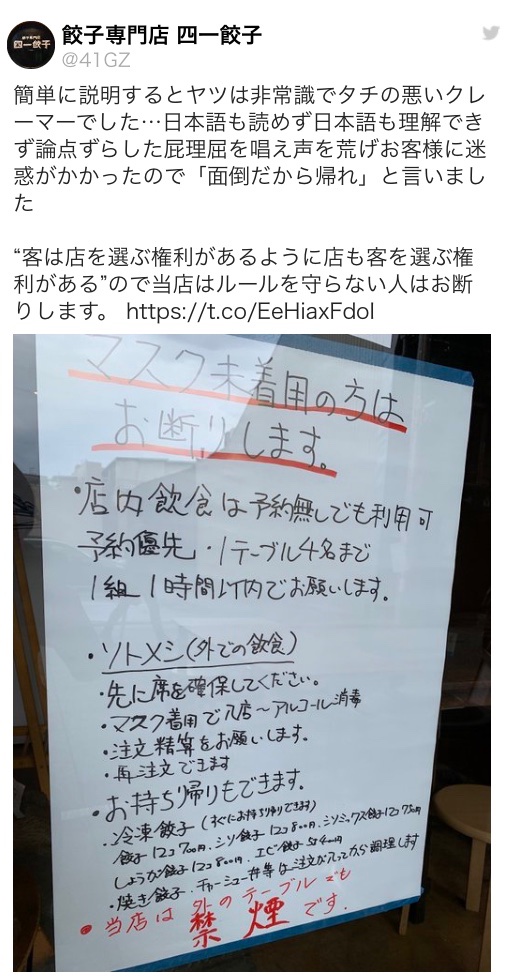 餃子専門店
四一餃子
餃子専門店 四一餃子
@41GZ
簡単に説明するとヤツは非常識でタチの悪いクレ
ーマーでした…日本語も読めず日本語も理解でき
ず論点ずらした屁理屈を唱え声を荒げお客様に迷
惑がかかったので「面倒だから帰れ」と言いまし
た
“客は店を選ぶ権利があるように店も客を選ぶ権
利がある”ので当店はルールを守らない人はお断
りします。 https://t.co/EeHiaxFdoI
マスク未着用の方は
お断りします。
・店内飲食は予約無しでも利用可
予約優先・1テーブル4名まで
1組1時間以内でお願いします。
・ソトメシ(外での飲食)
・先に席を確保してください。
・マスク着用で入店〜アルコール消毒
・注文精算をお願いします。
・再注文できます
・お持ち帰りもできます。
・冷凍餃子(すぐにお持ち帰りできます)
餃子12コ700円、シソ餃子12コ800円、シソミックス餃子12コ750円
しょうが餃子12コ800円、エビ餃子5コ400円
・焼き餃子、チャーシュー丼等は注文が入ってから調理します
・当店は外のテーブルでも
禁煙です。